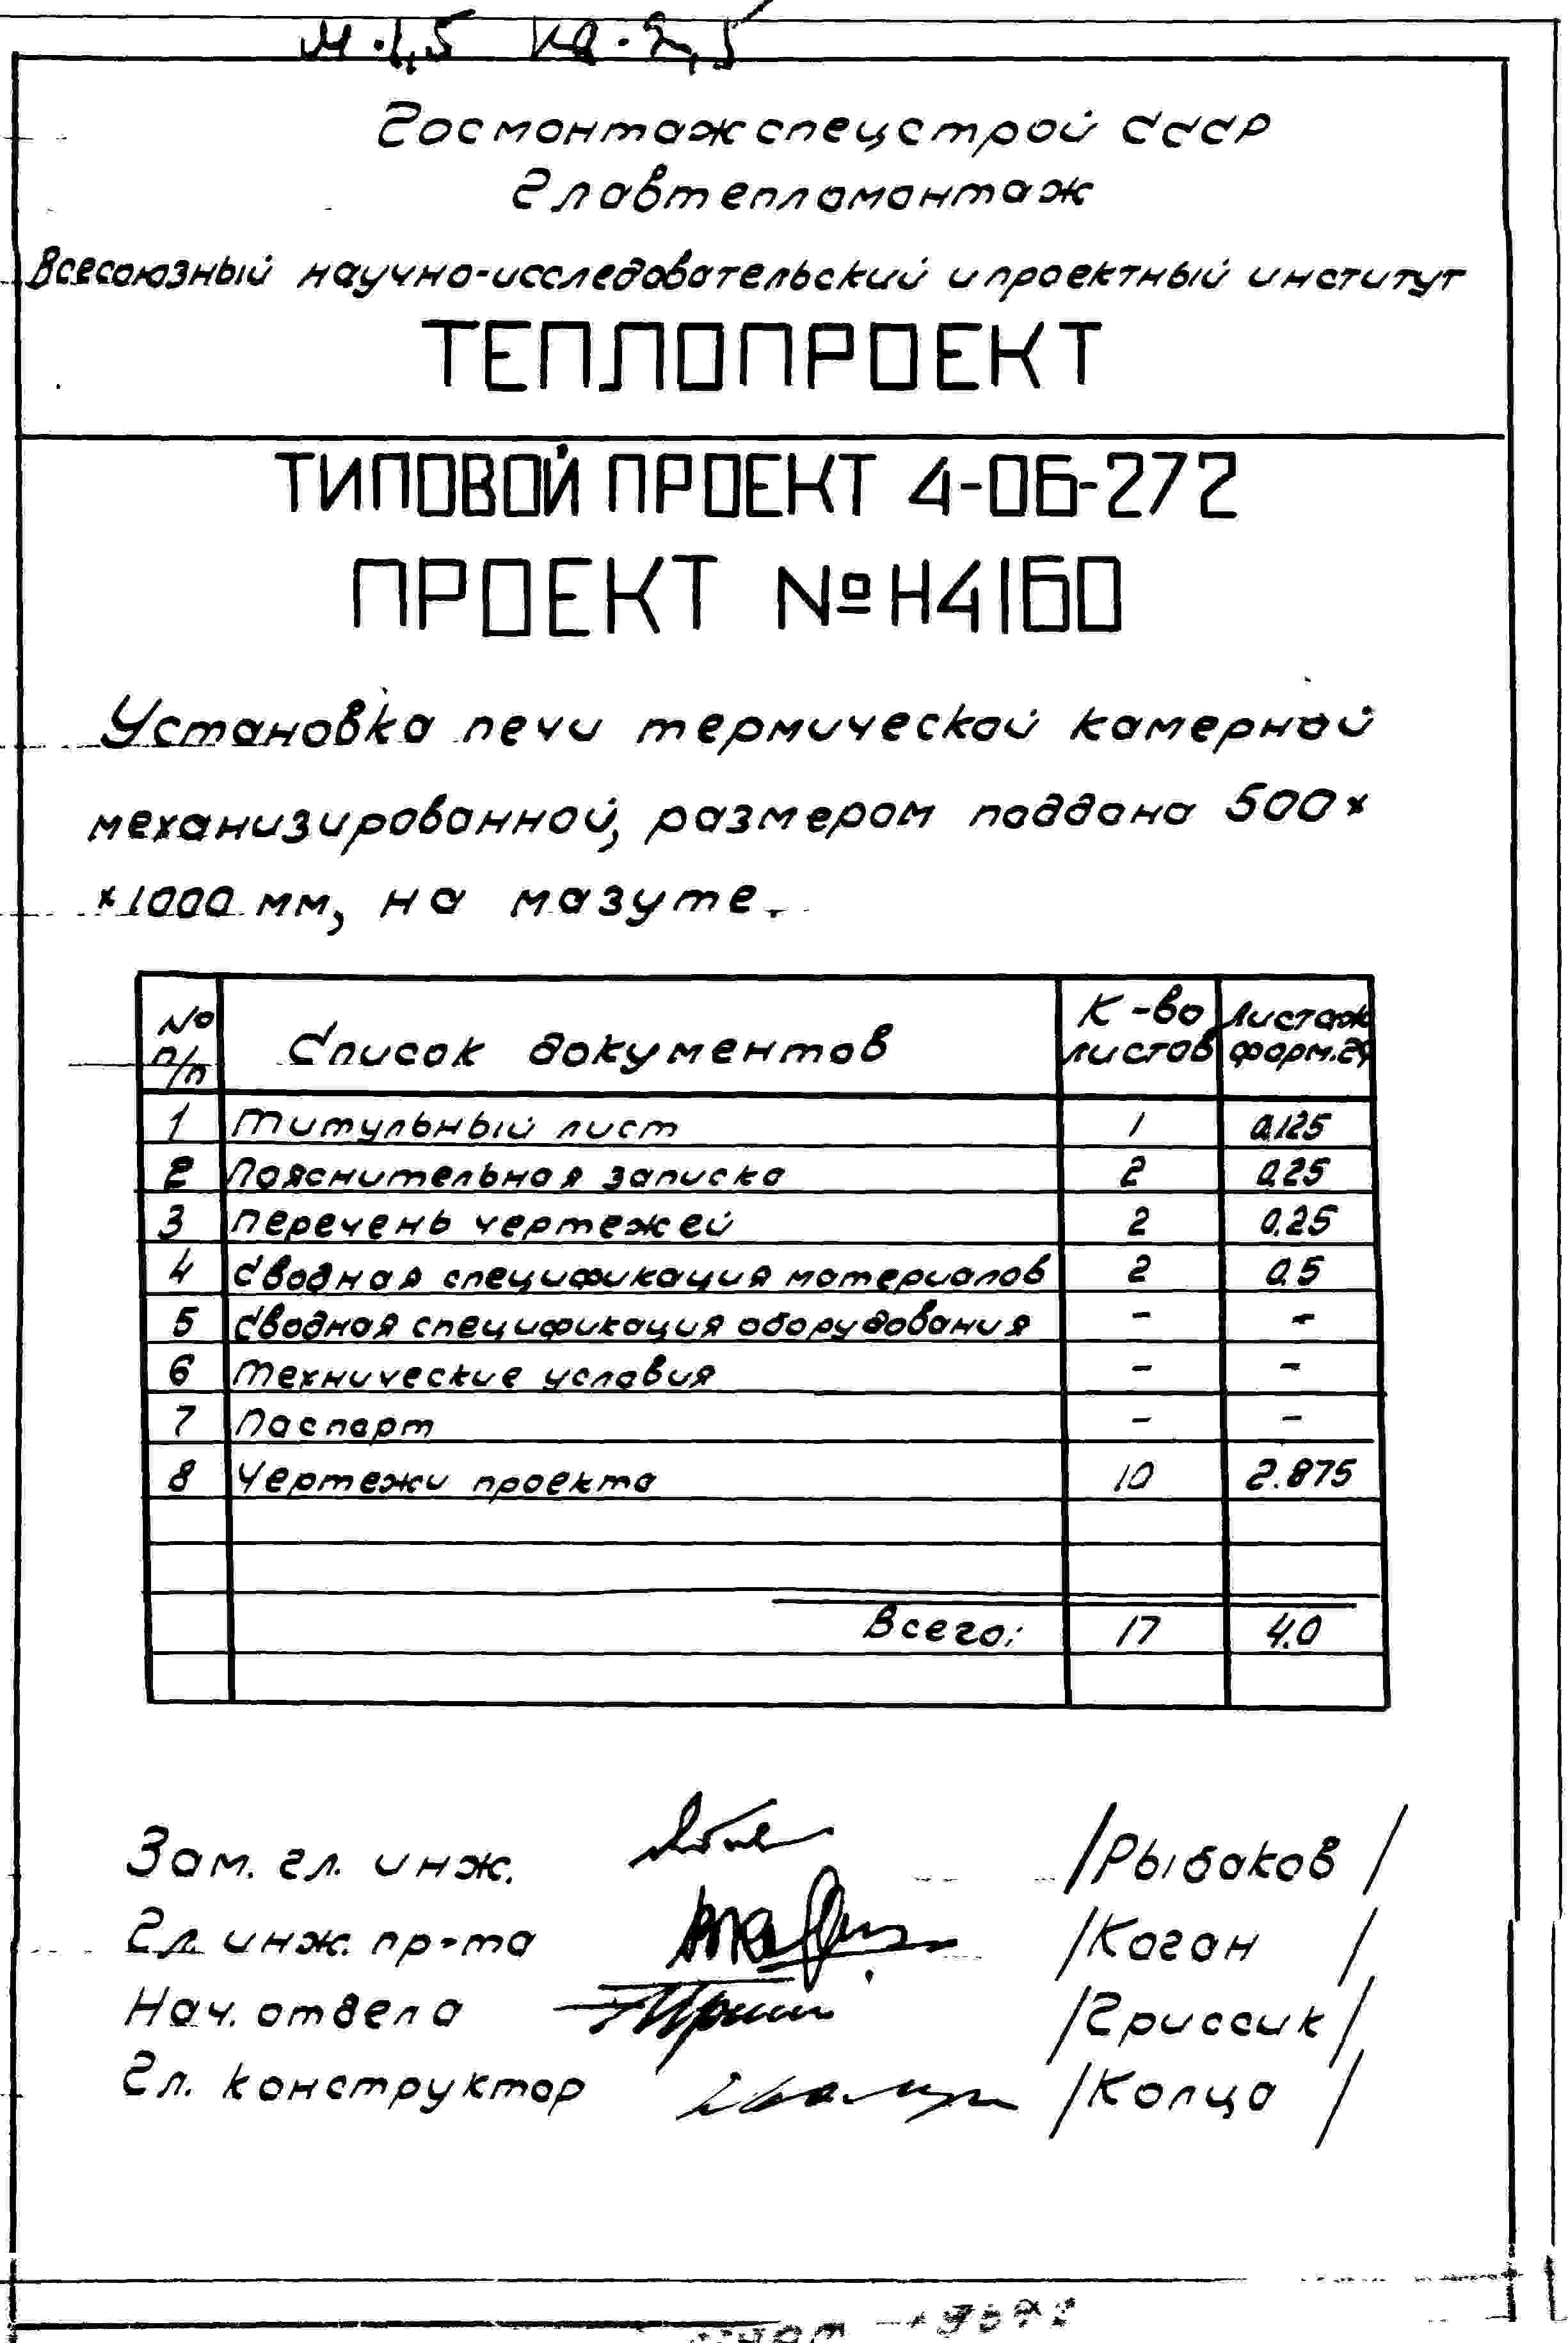 Госмонтажспецстрой СССР
Главтепломонтаж
Всесоюзный научно-исследовательский и проектный институт
ТЕПЛОПРОЕКТ
ТИПОВОЙ ПРОЕКТ 4-06-272
ПРОЕКТ №Н4160
Установка печи термической камерной
механизированной, размером поддона 500×
×1000 мм, на мазуте.
№ п/п Список документов К-во листов Листаж форм.24
1 Титульный лист 1 0,125
2 Пояснительная записка 2 0,25
3 Перечень чертежей 2 0.25
4 Сводная спецификация материалов 2 0.5
5 Сводная спецификация оборудования - -
6 Технические условия - -
7 Паспорт - -
8 Чертежи проекта 10 2.875
Всего: 17 4.0
Зам. гл. инж. /Рыбаков/
Гл. инж. пр-та /Коган/
Нач. отдела /Гриссик/
Гл. конструктор /Колца/